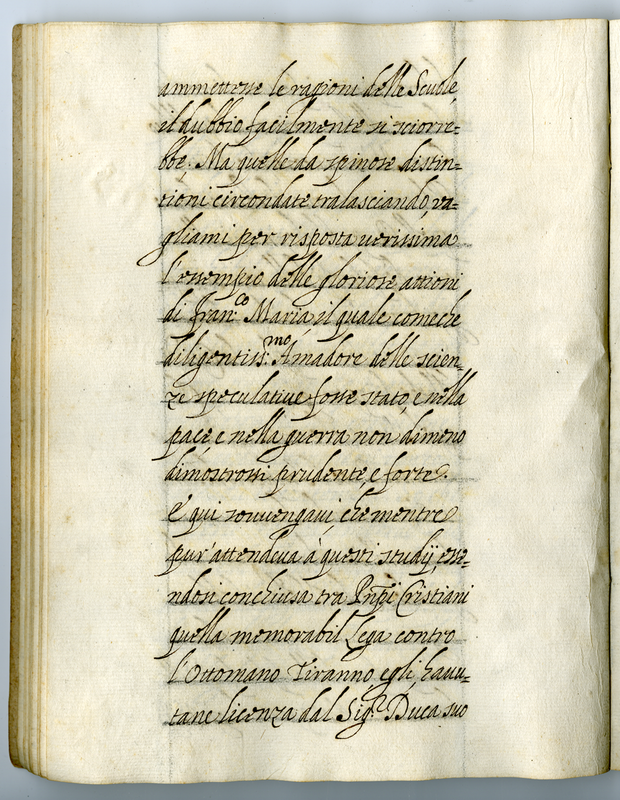 ammettesse le ragioni delle Scuole,
il dubbio facilmente si sciorre-
bbe. Ma quelle da spinose distin-
tioni circondate tralasciando, va-
gliami per risposta uerissima
l'essempio delle gloriose attioni
di Fran:co Maria il quale comeche
diligentiss:mo Amadore delle scien-
ze speculatiue fosse stato, e nella
pace, e nella guerra non dimeno
dimostrossi prudente, e forte.
E qui souuengaui, che mentre
pur'attendeua à questi studij esse-
ndosi conchiusa tra Pn̄pi Cristiani
quella memorabil Lega contro
l'Ottomano Tiranno egli hauu-
tane licenza dal Sig:r Duca suo